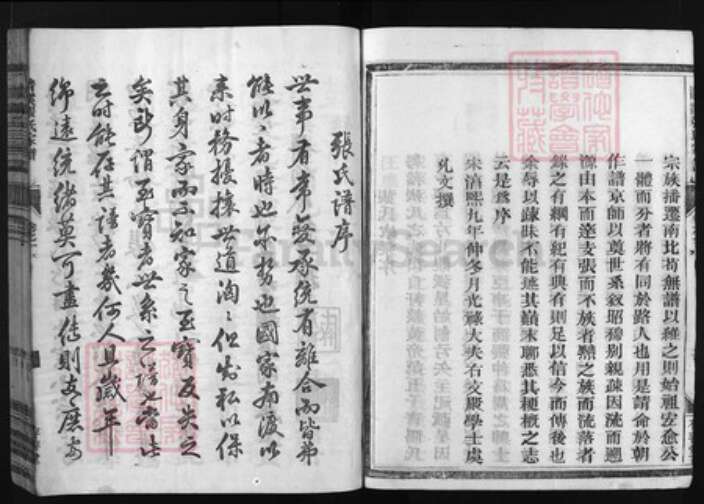 宗族播遷南北苟無譜以維之則始祖安愈公
一體而分者將有同於路人也用是請命於朝
作譜京師以奠世系敘昭穆別親疎因流而遡
源由本而達支張而不族者縣之族而流落者
錄之有綱有紀有典有則足以信今而傳後也
余辱以疎昧不能述其巔末聊悉其梗概之志
云是爲序
宋淳熙九年仲冬月光祿大夫右文殿學士虞
允文撰
張氏譜序
世事有常變承統有離合而皆弗
能以之者時也亦勢也國家南渡以
來時務擾攘世道洶々但知私以保
其身家而不知家之至寶反失之
矣所謂至寶者世系之譜也當此
之時能存其譜者幾何人且歲年
綿遠統緒莫可盡傳則支庶
FamilySearch